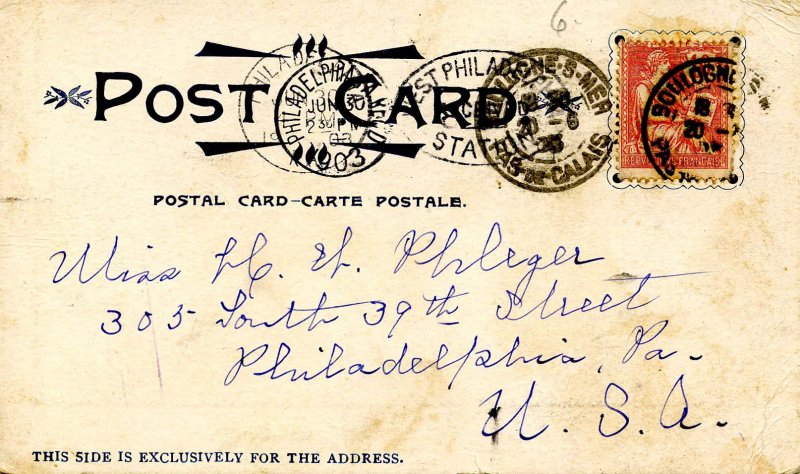 6.
POST CARD
PHILADELPHIA
JUN 30
2 30 PM
1903
WEST PHILAD
STATION
BOULOGNE-S-MER
20 6
PAS-DE-CALAIS
BOULOGNE-S
20
PAS
FRANÇAISE
POSTAL CARD–CARTE POSTALE.
Miss H. H. Phleger
305 South 39th Street
Philadelphia, Pa.
U. S. A.
THIS SIDE IS EXCLUSIVELY FOR THE ADDRESS.